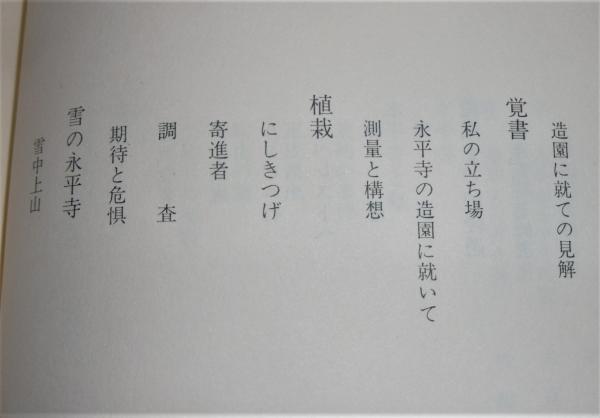 造園に就ての見解
覚書
私の立ち場
永平寺の造園に就いて
測量と構想
植栽
にしきつげ
寄進者
調　査
期待と危惧
雪の永平寺
雪中上山